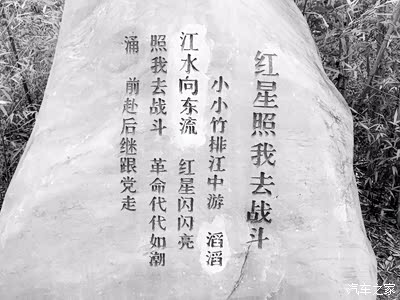 红星照我去战斗
小小竹排江中游 滔滔
江水向东流 红星闪闪亮
照我去战斗 革命代代如潮
涌 前赴后继跟党走
汽车之家